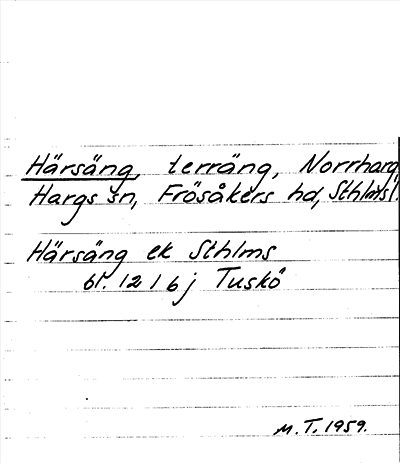 Härsäng, terräng, Norrharg,
Hargs sn, Frösåkers hd, Sthlms l.
Härsäng ek Sthlms
bl. 12 I 6 j Tuskö
M.T. 1959.